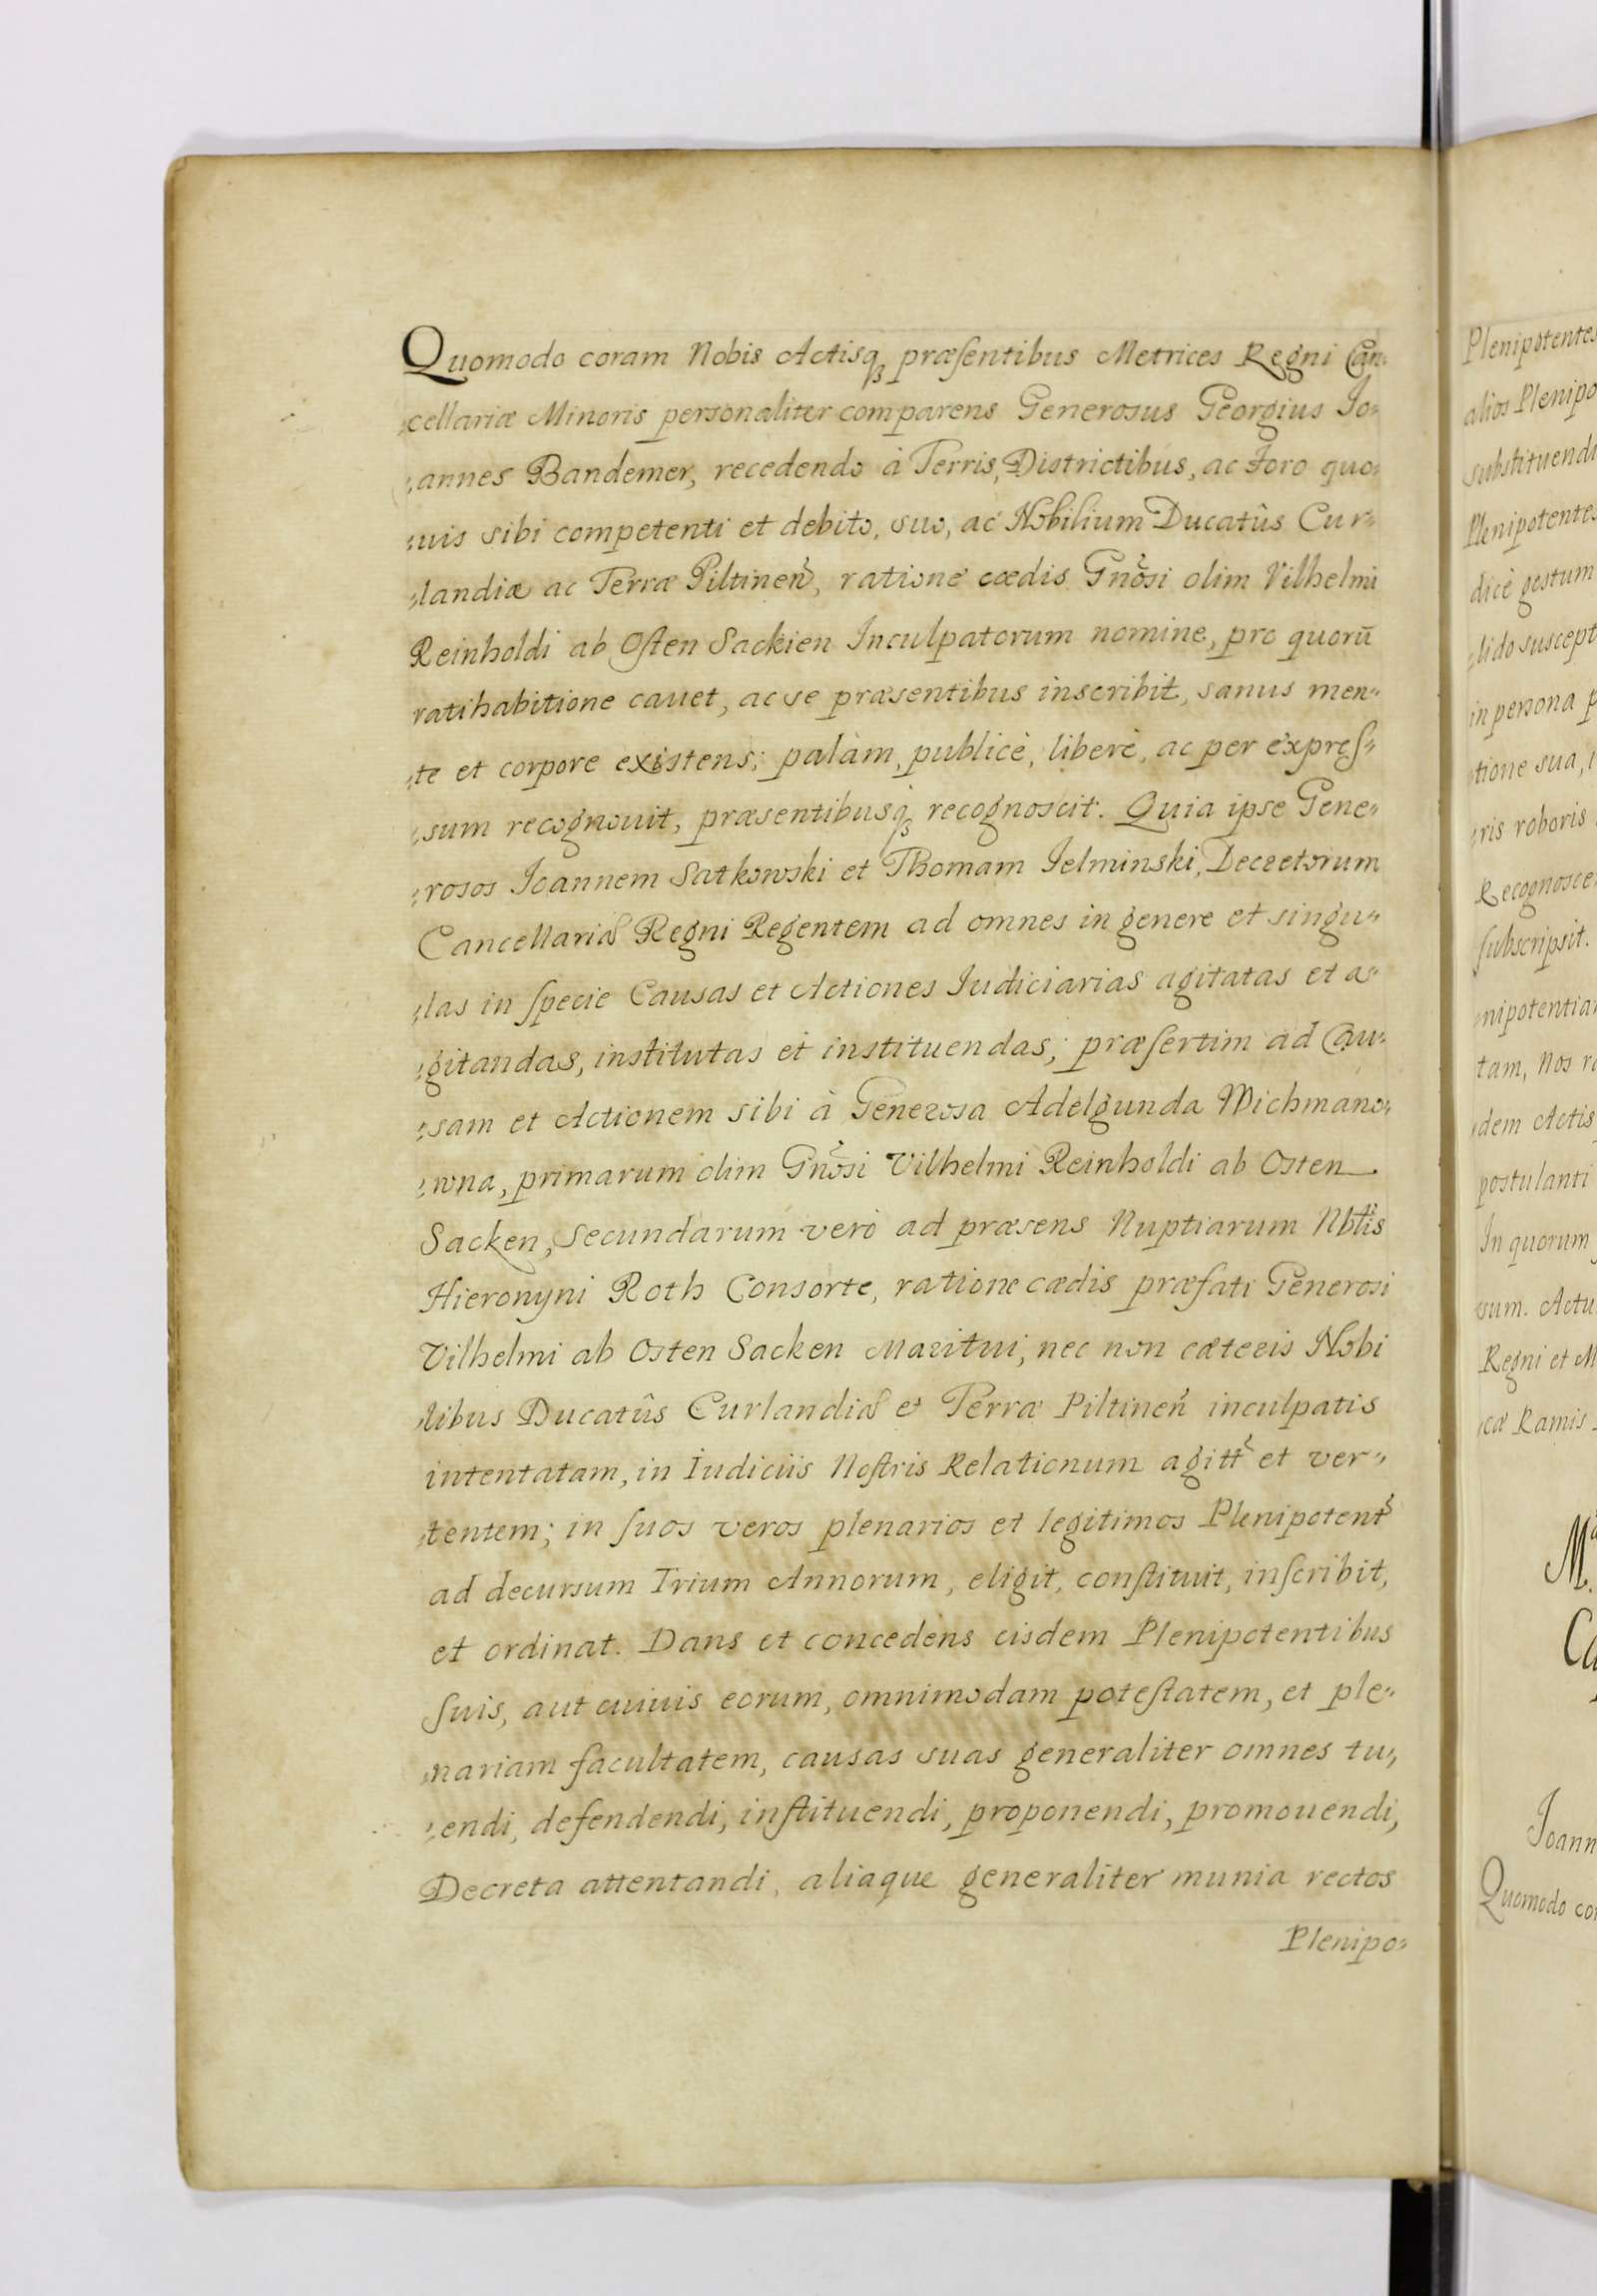 Quomodo coram Nobis Actisqꝫ præſentibus Metrices Regni Can⸗
⸗cellariæ Minoris personaliter comparens Generosus Georgius Jo⸗
⸗annes Bandemer, recedendo à Terris, Districtibus, ac Foro quo⸗
⸗uis sibi competenti et debito, suo, ac Nobilium Ducatûs Cur⸗
⸗landiæ ac Terræ Piltineñ, ratione cædis Gnősi olim Vilhelmi
Reinholdi ab Oſten Sackien Inculpatorum nomine, pro quorū
ratihabitione cauet, ac se præsentibus inscribit, sanus men⸗
⸗te et corpore existens; palàm, publicè, liberè, ac per expreſ⸗
⸗sum recognouit, præsentibusqꝫ recognoscit. Quia ipse Gene⸗
⸗rosos Joannem Satkowski et Thomam Jelminski, Decretorum
Cancellariæ Regni Regentem ad omnes in genere et singu⸗
⸗las in ſpecie Causas et Actiones Iudiciarias agitatas et a⸗
⸗gitandas, institutas et instituendas; præſertim ad Cau⸗
⸗sam et Actionem sibi à Generosa Adelgunda Wichmano⸗
⸗wna, primarum olim Gnősi Vilhelmi Reinholdi ab Osten
Sacken, Secundarum verò ad præsens Nuptiarum Nbtis
Hieronyni Roth Consorte, ratione cædis præfati Generosi
Vilhelmi ab Osten Sacken Maritui, nec non cæteris Nobi
⸗libus Ducatûs Curlandiæ et Terræ Piltineñ inculpatis
intentatam, in Iudiciis Noſtris Relationum agitt et ver⸗
⸗tentem; in ſuos veros plenarios et legitimos Plenipotent
ad decursum Trium Annorum, eligit, conſtituit, inſcribit,
et ordinat. Dans et concedens eisdem Plenipotentibus
Suis, aut cuiuis eorum, omnimodam poteſtatem, et ple⸗
⸗nariam facultatem, causas suas generaliter omnes tu⸗
⸗endi, defendendi, inſtituendi, proponendi, promouendi,
Decreta attentandi, aliaque generaliter munia rectos
Plenipo⸗
Plenipotentes
alios Plenipo
substituendi
Plenipotentes
dicè gestum
⸗lido suscept
in persona p
⸗tione sua,
⸗ris roboris
Recognosce
ſubscripsit.
⸗nipotentia
tam, Nos r
⸗dem Actis
postulanti
In quorum
sum. Actu
Regni et M
⸗cæ Ramis
M
Ca
Joann
Quomodo co